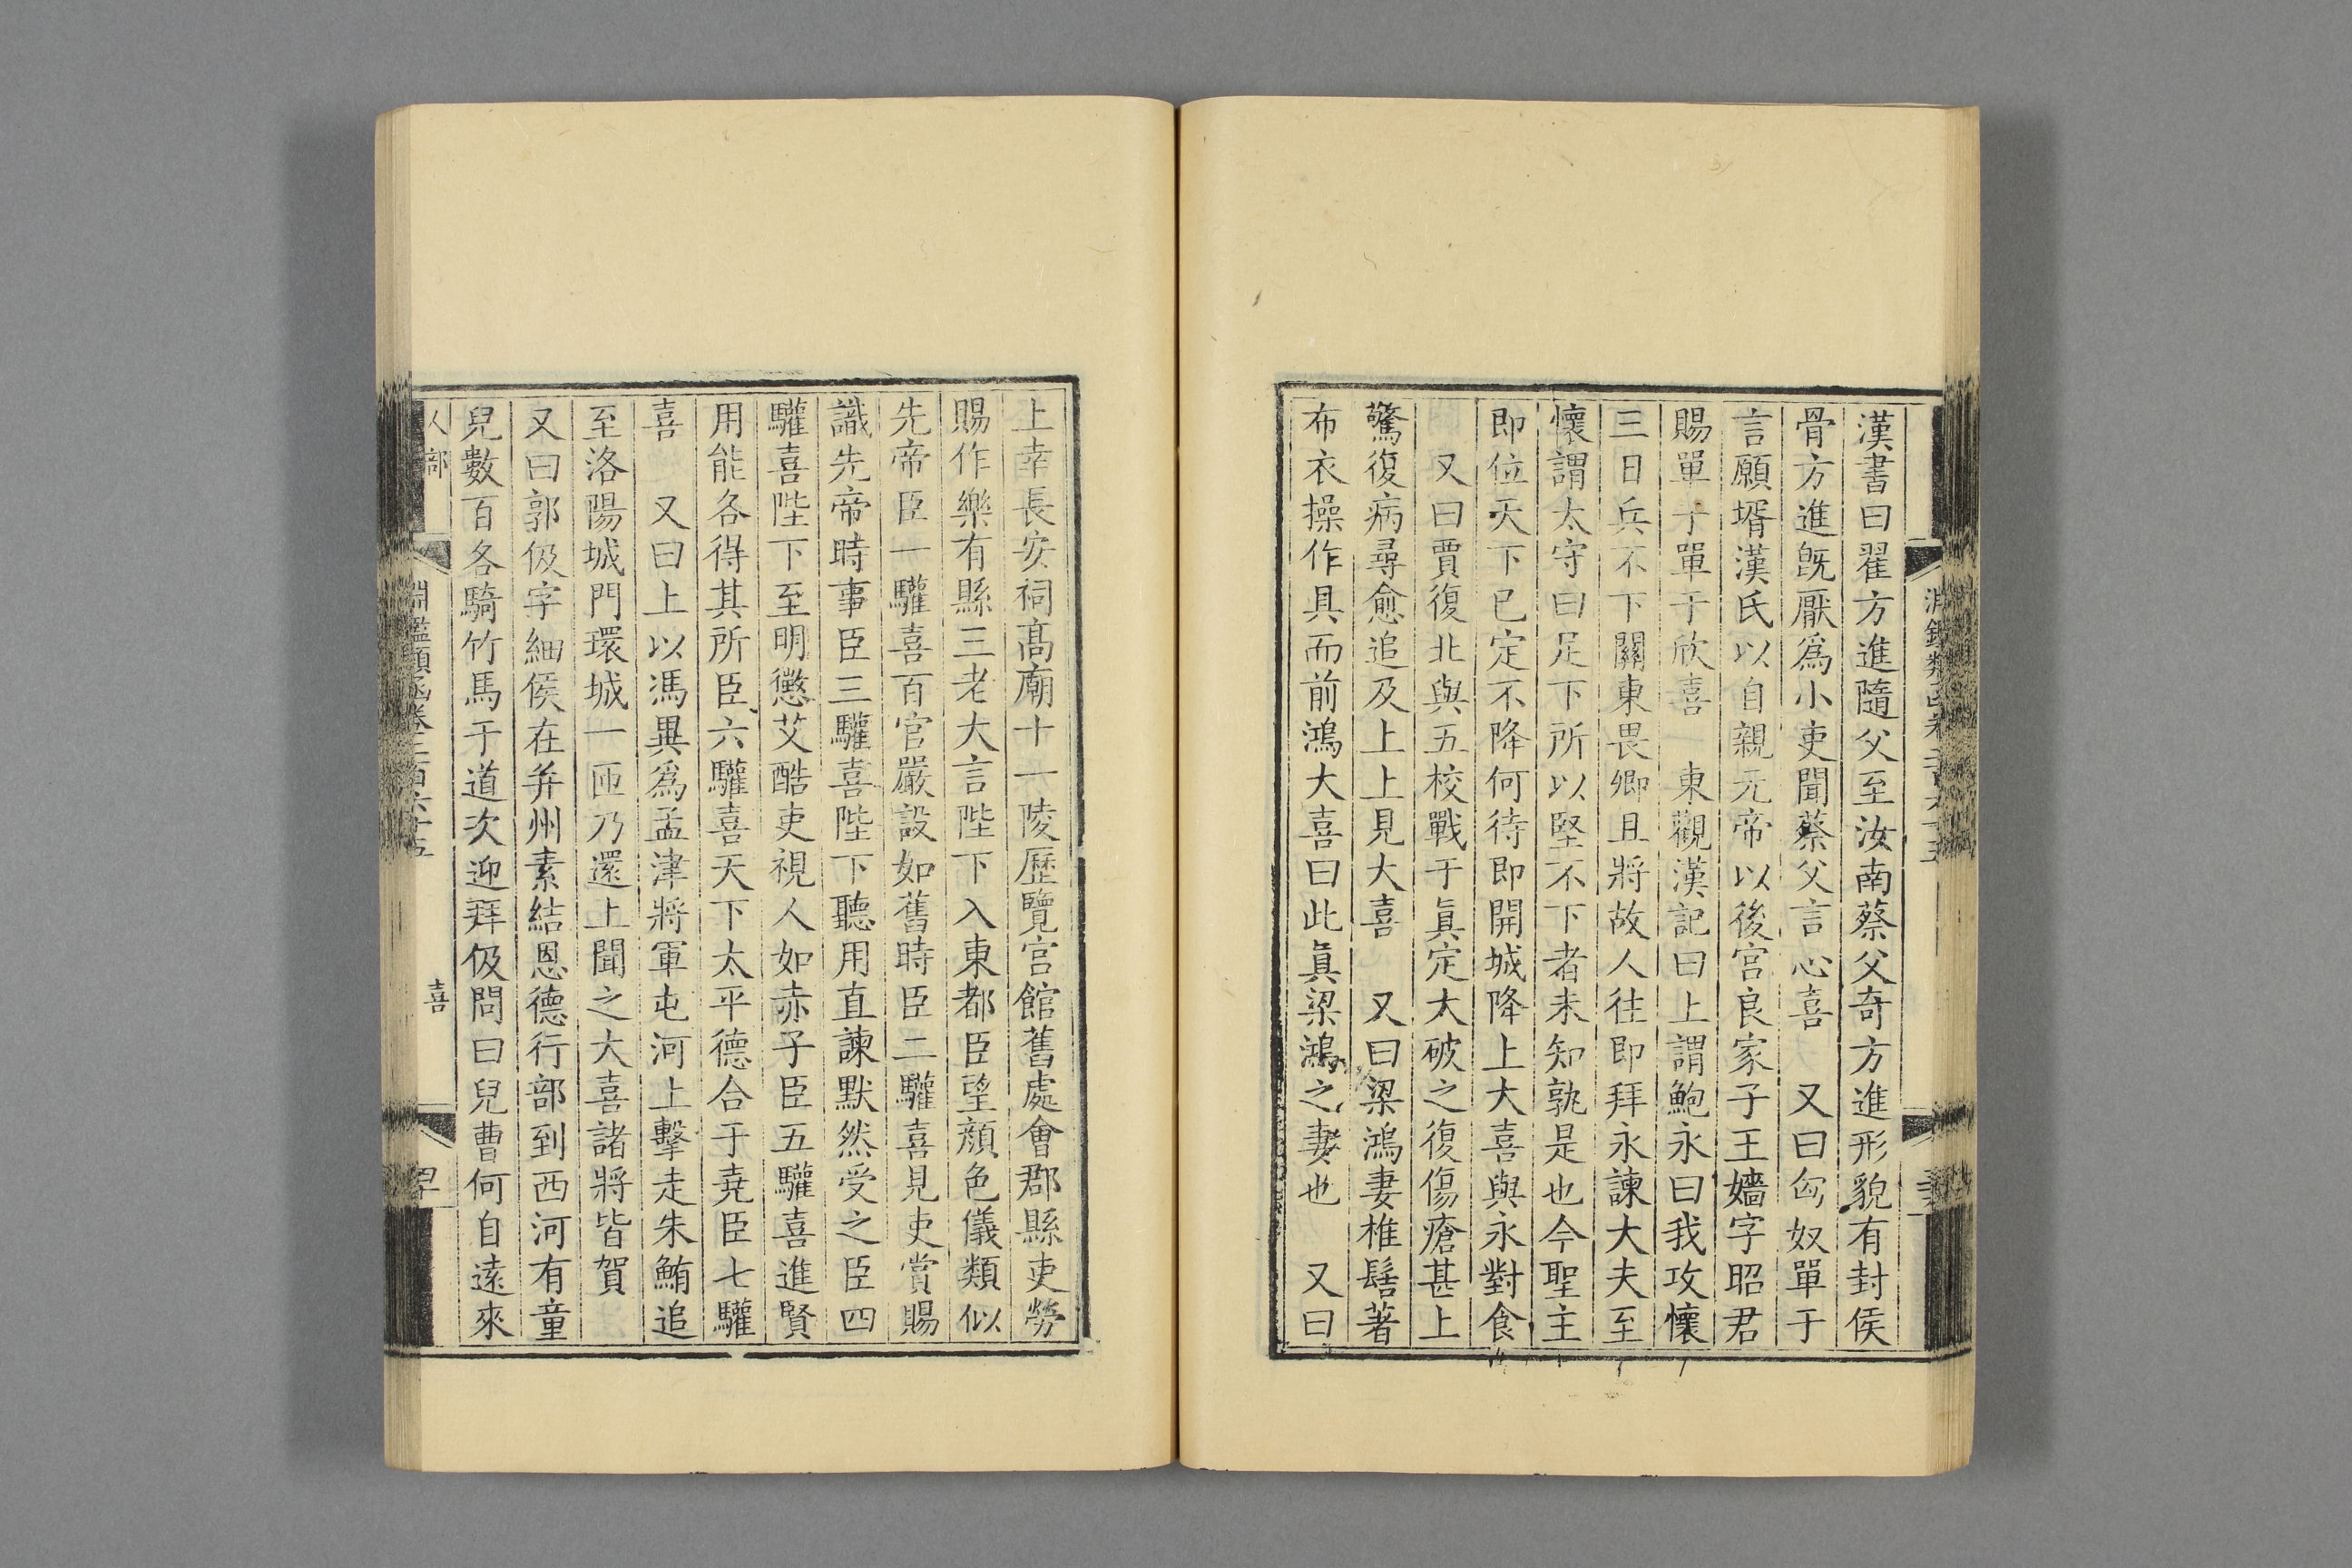 漢書曰翟方進隨父至汝南蔡父奇方進形貌有封侯
骨方進旣厭爲小吏聞蔡父言心喜 又曰匈奴單于
言願壻漢氏以自親元帝以後宮良家子王嬙字昭君
賜單于單于欣喜 東觀漢記曰上謂鮑永曰我攻懷
三日兵不下關東畏卿且將故人往即拜永諫大夫至
懷謂太守曰足下所以堅不下者未知孰是也今聖主
即位天下已定不降何待即開城降上大喜與永對食
又曰賈復北與五校戰于眞定大破之復傷瘡甚上
驚復病尋愈追及上上見大喜 又曰梁鴻妻椎髻著
布衣操作具而前鴻大喜曰此眞梁鴻之妻也 又曰
上幸長安祠高廟十一陵歷覽宮館舊處會郡縣吏勞
賜作樂有縣三老大言陛下入東都臣望顏色儀類似
先帝臣一驩喜百官嚴設如舊時臣二驩喜見吏賞賜
識先帝時事臣三驩喜陛下聽用直諫默然受之臣四
驩喜陛下至明懲艾酷吏視人如赤子臣五驩喜進賢
用能各得其所臣六驩喜天下太平德合于堯臣七驩
喜 又曰上以馮異爲孟津將軍屯河上擊走朱鮪追
至洛陽城門環城一匝乃還上聞之大喜諸將皆賀
又曰郭伋字細侯在并州素結恩德行部到西河有童
兒數百各騎竹馬于道次迎拜伋問曰兒曹何自遠來
人部
淵鑑類函卷二百六十五
喜